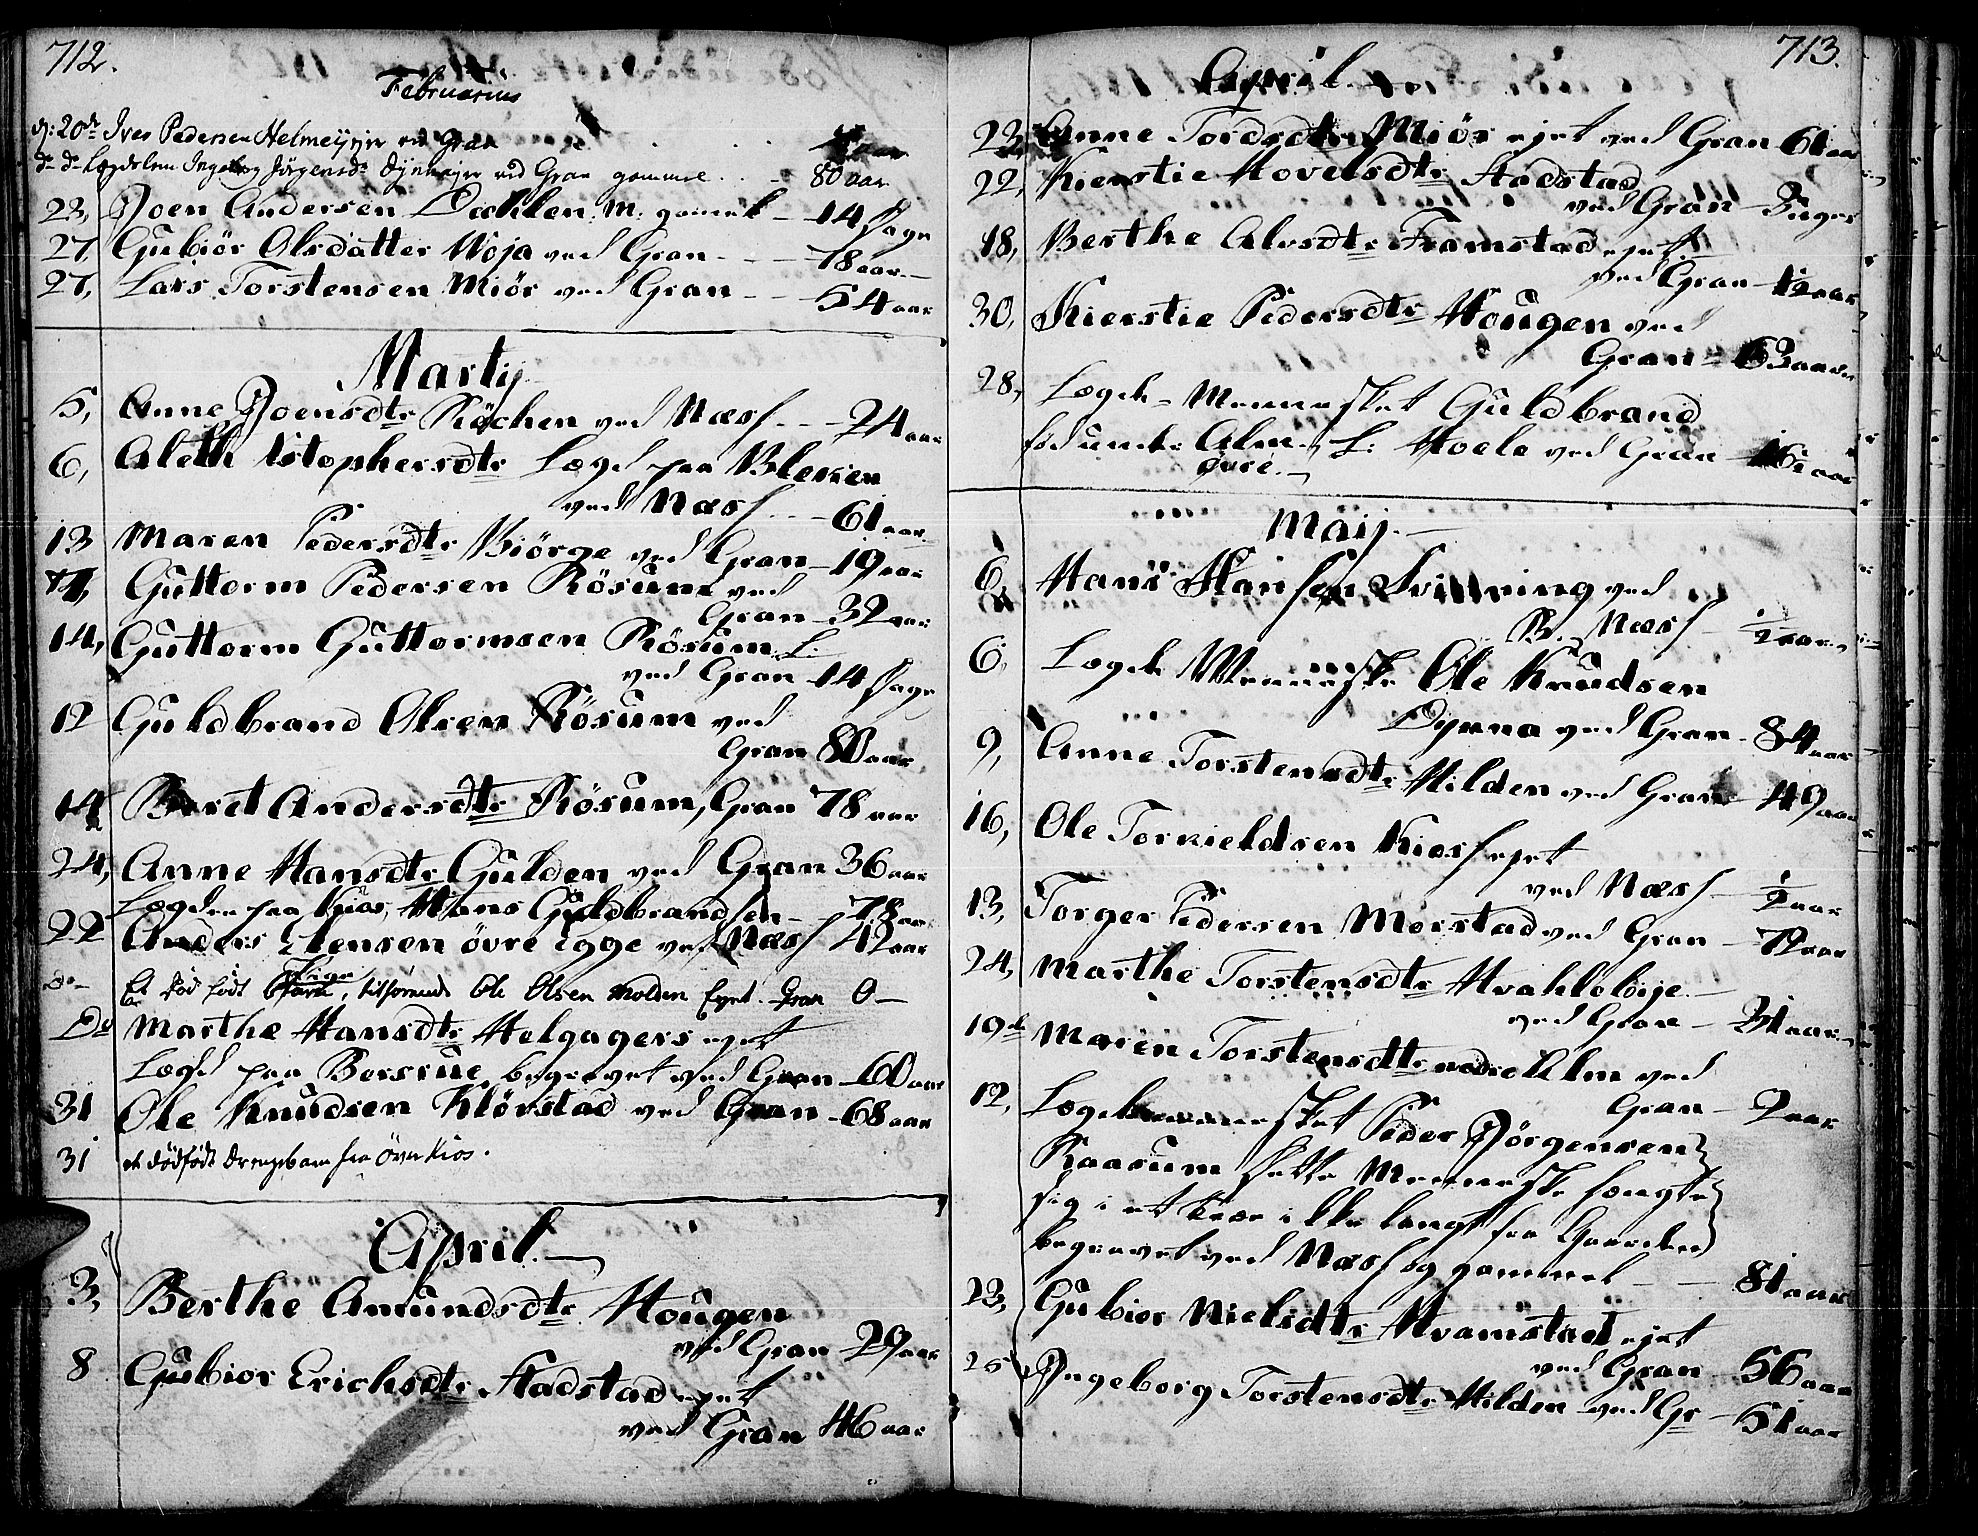 712.
Februarius
d: 20de Iver Pedersen Helmeijer ved Gran
do do Lægdslem Ingeborg Jörgensdr Dynmejer ved Gran gammel 80 aar
23, Joen Andersen Dæhlen M. gamel 14 Dage
27 Gubiör Olsdatter Woja ved Gran 78 aar
27, Lars Torstensen Miör ved Gran 54 aar
Martij
5, Anne Joensdtr Röchen ved Næss 24 aar
6, Aleth istophersdtr Lægd paa Bleken
ved Næss 61 aar
13 Maren Pedersdtr Biörge ved Gran 19 aar
Guttorm Pedersen Rösum ved
Gran 32 aar
14, Guttorm Guttormsen Rösum L:
ved Gran 14 Dage
12 Guldbrand Olsen Rösum ved
Gran 80 aar
14 Beret Andersdtr Rösum, Gran 78 aar
24, Anne Hansdtr Gulden ved Gran 36 aar
Lægden paa Kios, Hans Guldbrandsen 78 aar
22 Anders Jensen övre Egge ved Næss 42 aar
do Et död födt Pige, tilhörende Ole Olsen Molden Eyet Gran 0
Do Marthe Hansdtr Helgagers eyet
Lægd paa Bersrue, begravet ved Gran 60 aar
31 Ole Knudsen Klövstad ved Gran 68 aar
31 et dödfödt drengebarn fra Över Kios.
April
3, Berthe Amundsdtr Hougen
ved Gran 29 aar
8 Gubior Erichsdtr Stadstad eyet
ved Gran 46 aar
713.
April
23, Anne Tordsdtr Miör eyet ved Gran 61 aar
22, Kierstie Hovelsdtr Stadstad
ved Gran 3 uger
18, Berthe Alvsdtr Framstad eyet
ved Gran 12 aar
30, Kierstie Pedersdtr Hougen ved
Gran 63 aar
28, Lægds-Mennesket Guldbrand
Alm L: Hoele ved Gran
övre
Maij
6, Hans Hansen Svinning ved
B. Næss 1/2 aar
6, Lægds Menneske Ole Knudsen
Dynna ved Gran 84 aar
9, Anne Torstensdtr Hilden ved Gran 49 aar
16, Ole Torkieldsen Kios eyet
ved Næss 1/2 aar
13, Torger Pedersen Morstad ved Gran 72 aar
24, Marthe Torstensdtr Hvahleböije
ved Gran 31 aar
19de Maren Torstensdtr nedre Alm ved
Gran 2 aar
12, Lægdsmennesket Peder Jörgensen
Raasum dette Menneske hængte
sig i et træe ikke langt fra Gaarden
begravet ved Næss og gammel 81 aar
23, Gubior Nielsdtr Hvamstad eyet
ved Gran 56 aar
25 Ingeborg Torstensdtr Hilden ved Gr 51 aar